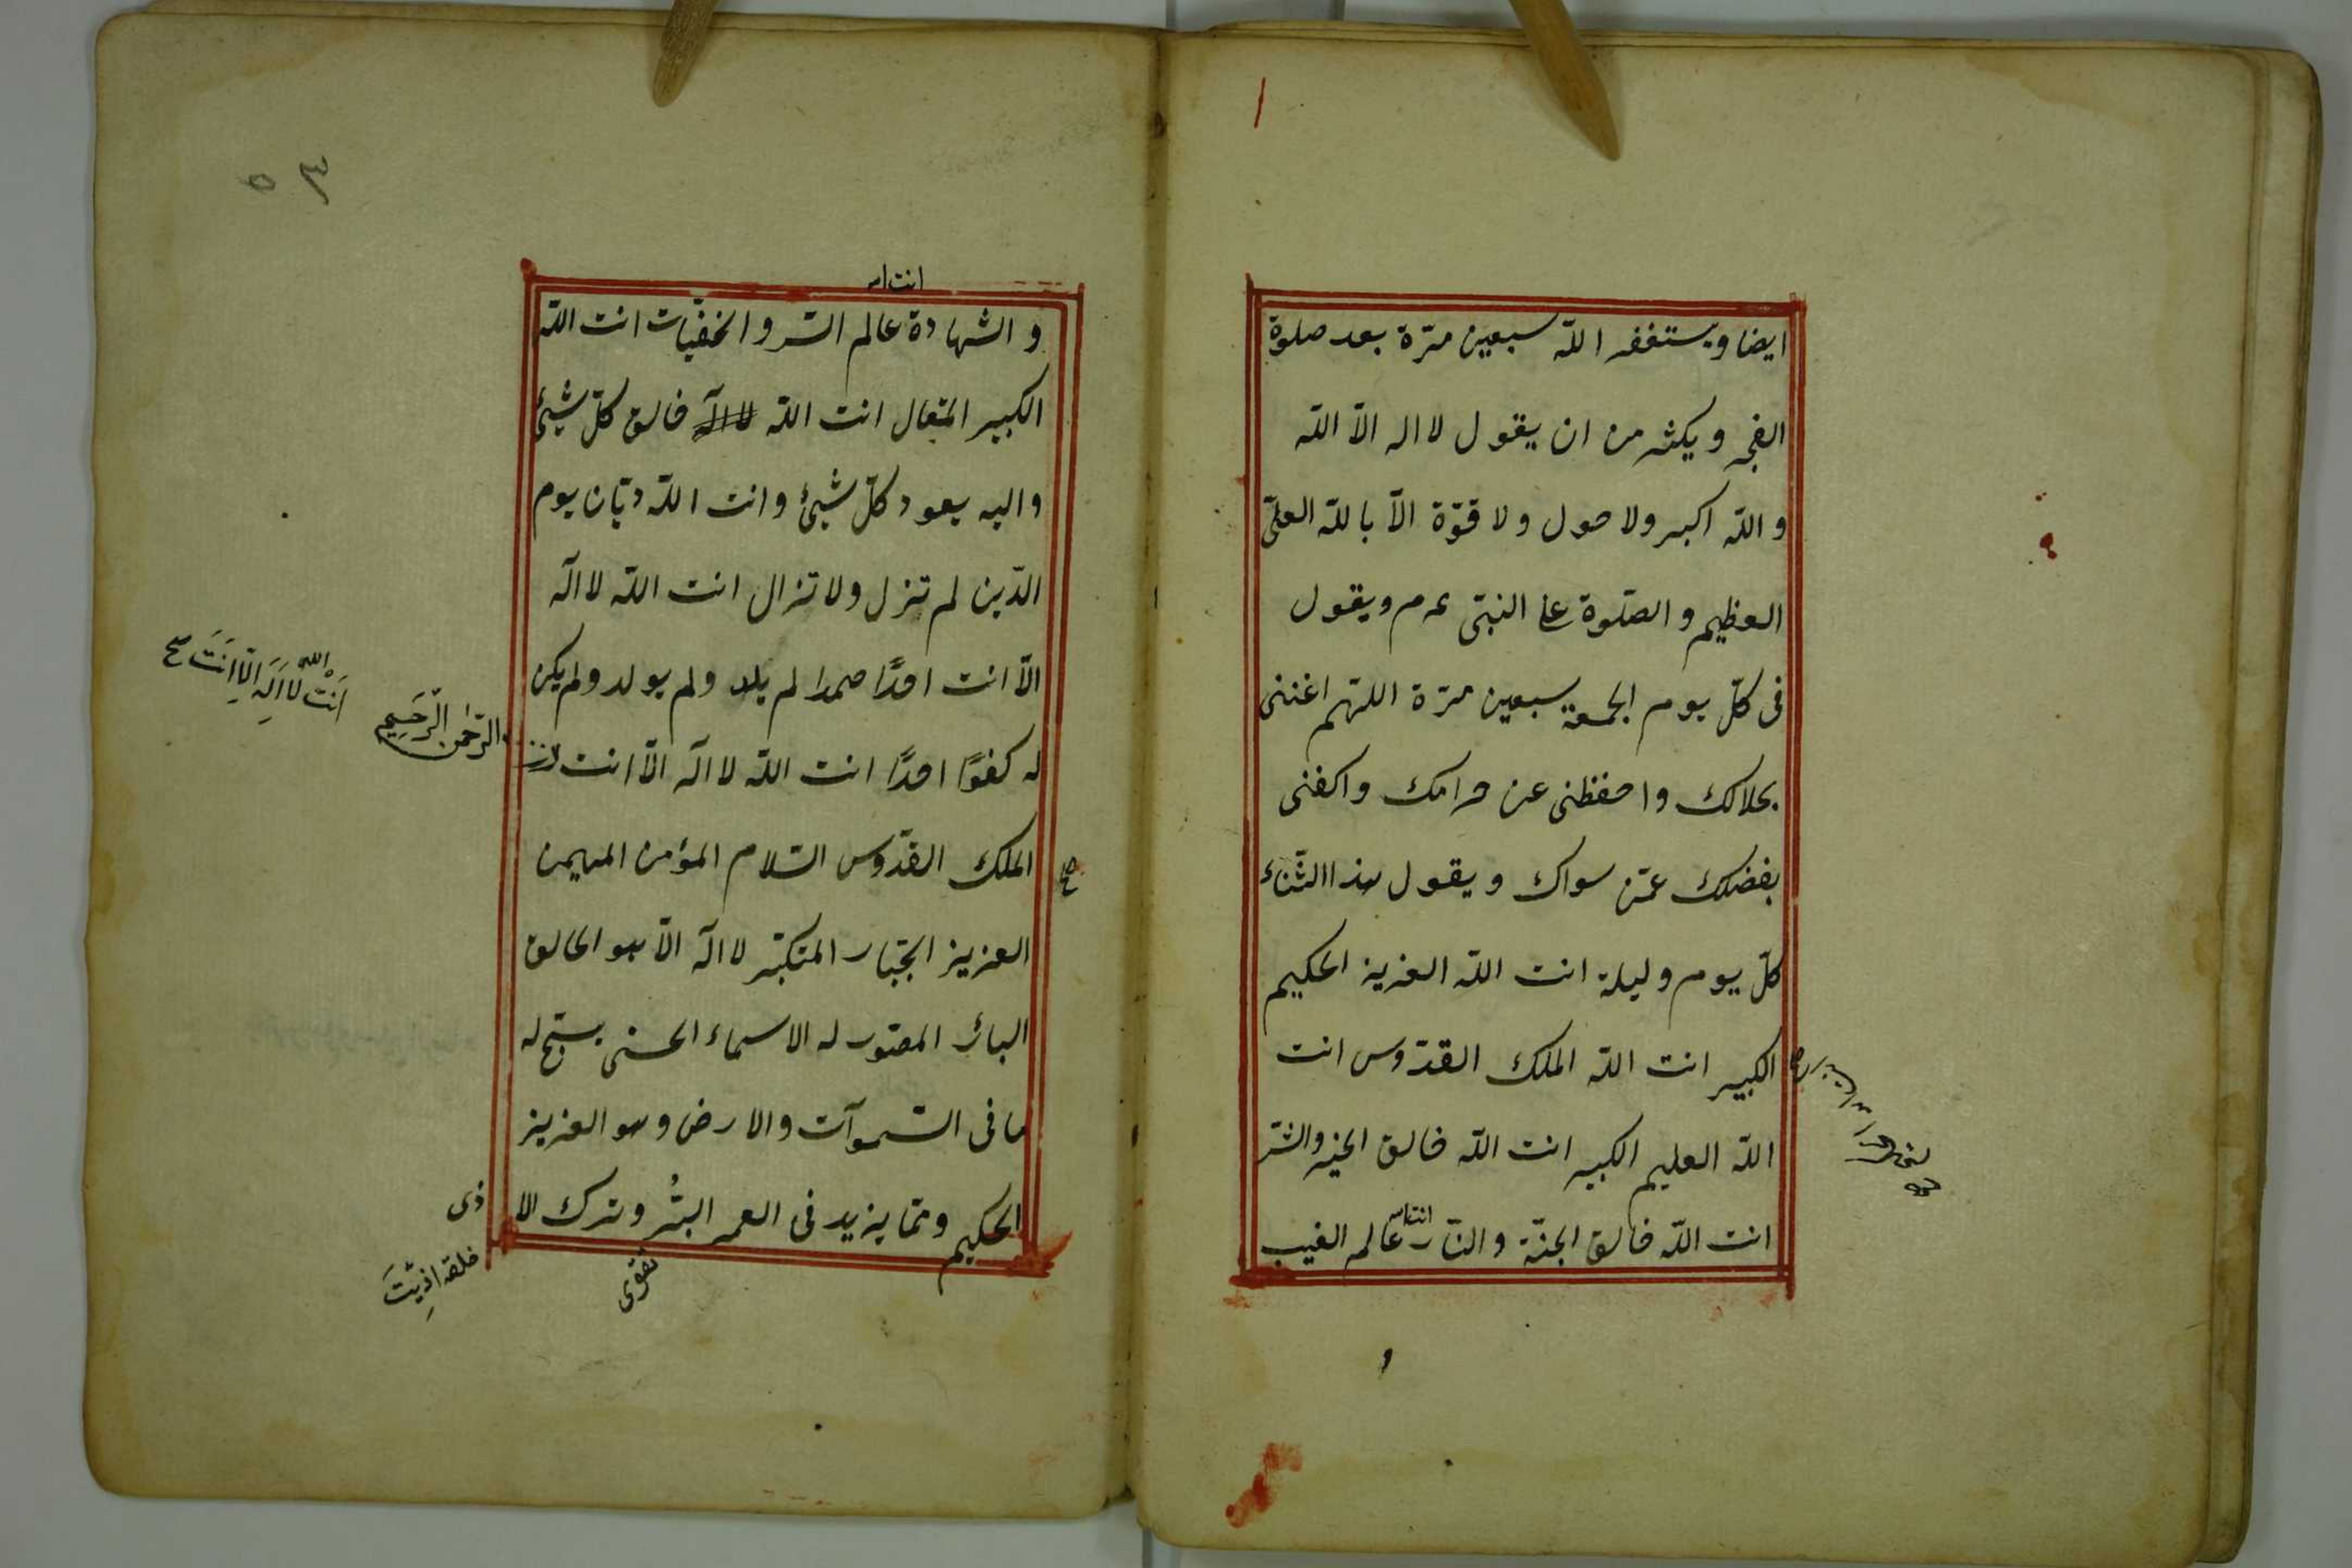 ايضا ويستغفر اللّه سبعين مرّة بعد صلوة
الفجر ويكثر من ان يقول لا اله الاّ اللّه
و اللّه اكبر ولا حول ولا قوّة الاّ باللّه العلىّ
العظيم و الصّلوة على النبىّ عم م ويقول
فى كلّ يوم الجمعة سبعين مرّة اللّهم اغننى
بحلالك واحفظنى عن حرامك واكفنى
بفضلك عمّن سواك ويقول هذا الثّناء
كلّ يوم وليلة انت اللّه العزيز الحكيم
الكبير انت اللّه الملك القدّوس انت
اللّه العليم الكبير انت اللّه خالق الخير والشّر
انت اللّه خالق الجنّة والنّار انت الله عالم الغيب
انت الله
و الشهادة عالم السّر والخفيّات انت اللّه
الكبير المتعال انت اللّه لا اله خالق كلّ شيئ
واليه يعود كلّ شيئ وانت اللّه ديّان يوم
الدّين لم تزل ولا تزال انت اللّه لا اله
الاّ انت احدًا صمدا لم يلد ولم يولد ولم يكن
له كفوًا احدًا انت اللّه لا اله الاّ انت
الملك القدّوس السّلام المؤمن المهيمن
العزيز الجبّار المتكبّر لا اله الاّ هو الخالق
البارئ المصوّر له الاسماء الحسنى يسبّح له
ما فى السّموات والارض وهو العزيز
الحكيم وممّا يزيد فى العمر البرّ وترك الا
ذى
تقوى
خلقه اذيّت
الرّحمن الرّحيم
انت اللّه لا اله الاّ انت صح
صح
٥٣